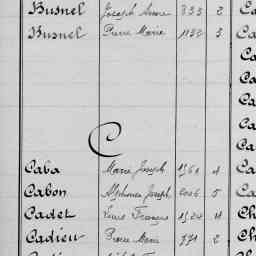 Busnel Joseph Anne 833 2 Ca
Busnel Pierre Marie 1132 3 Ca
C
Caba Marie Joseph 1361 4 Ca
Cabon Alphonse Joseph 2006 5 Ca
Cadet Louis François 1524 4 Ch
Cadieu Pierre Marie 771 2 Ch